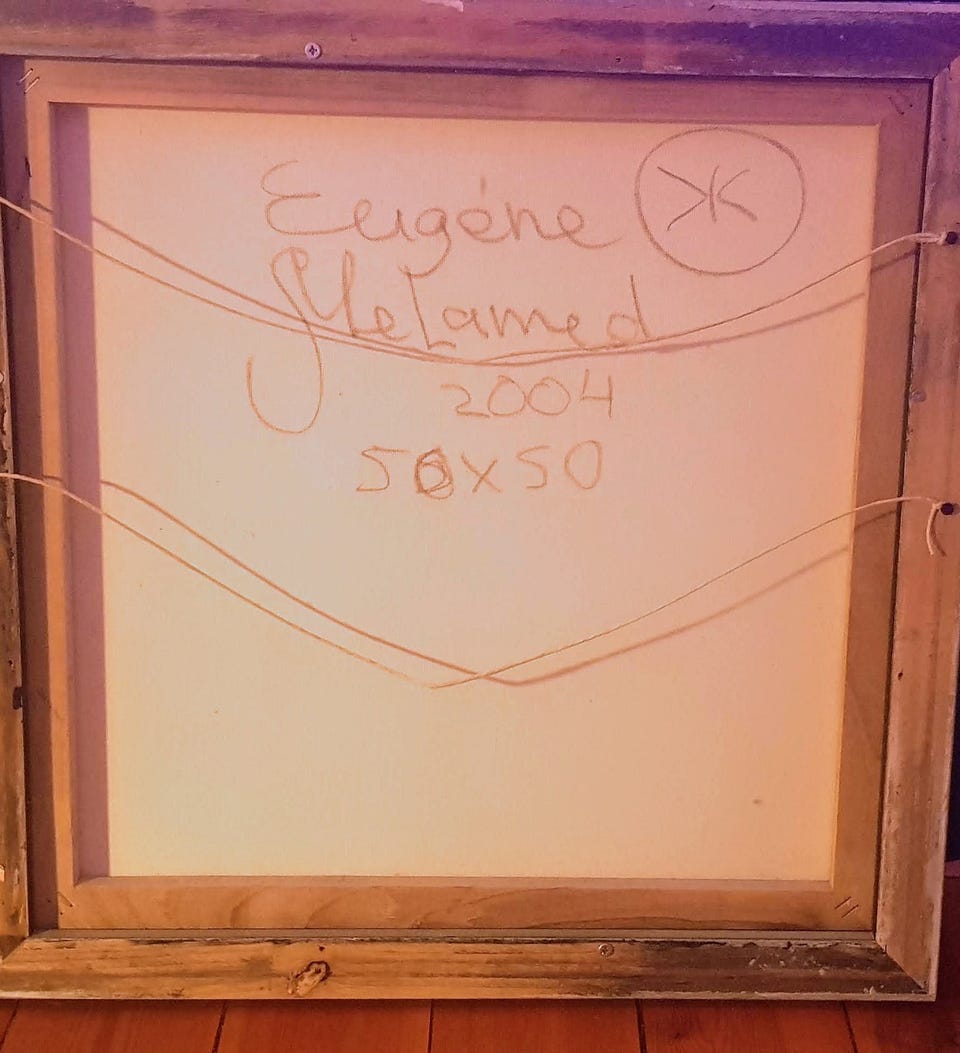 Eugéne Ж
Melamed
2004
50x50